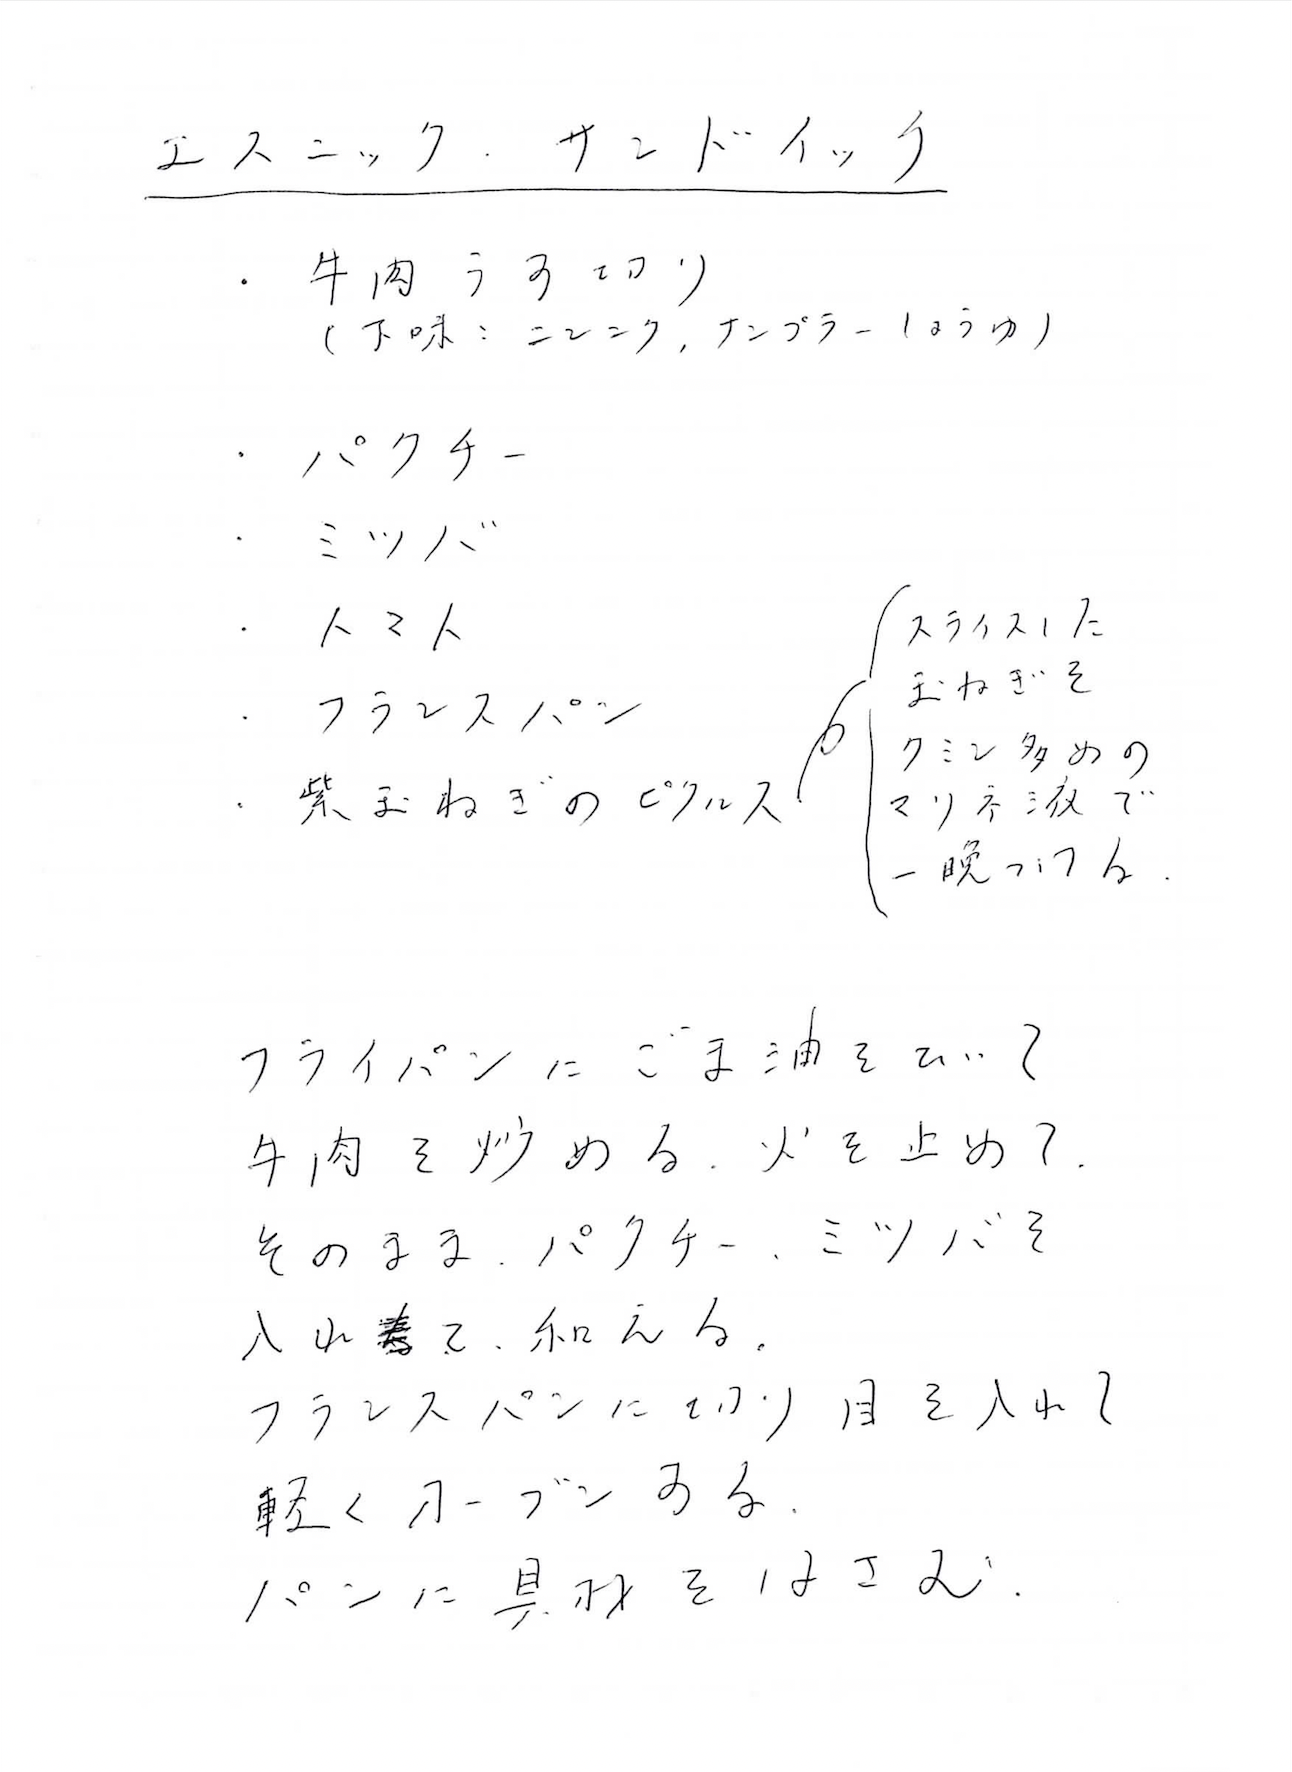 エスニック・サンドイッチ
・牛肉うす切り
(下味：ニンニク、ナンプラーしょうゆ)
・パクチー
・ミツバ
・トマト
・フランスパン
・紫玉ねぎのピクルス
スライスした
玉ねぎを
クミン多めの
マリネ液で
一晩つける。
フライパンにごま油をひいて
牛肉を炒める。火を止めて、
そのまま、パクチー、ミツバを
入れて、和える。
フランスパンに切り目を入れて
軽くオーブンする。
パンに具材をはさむ。